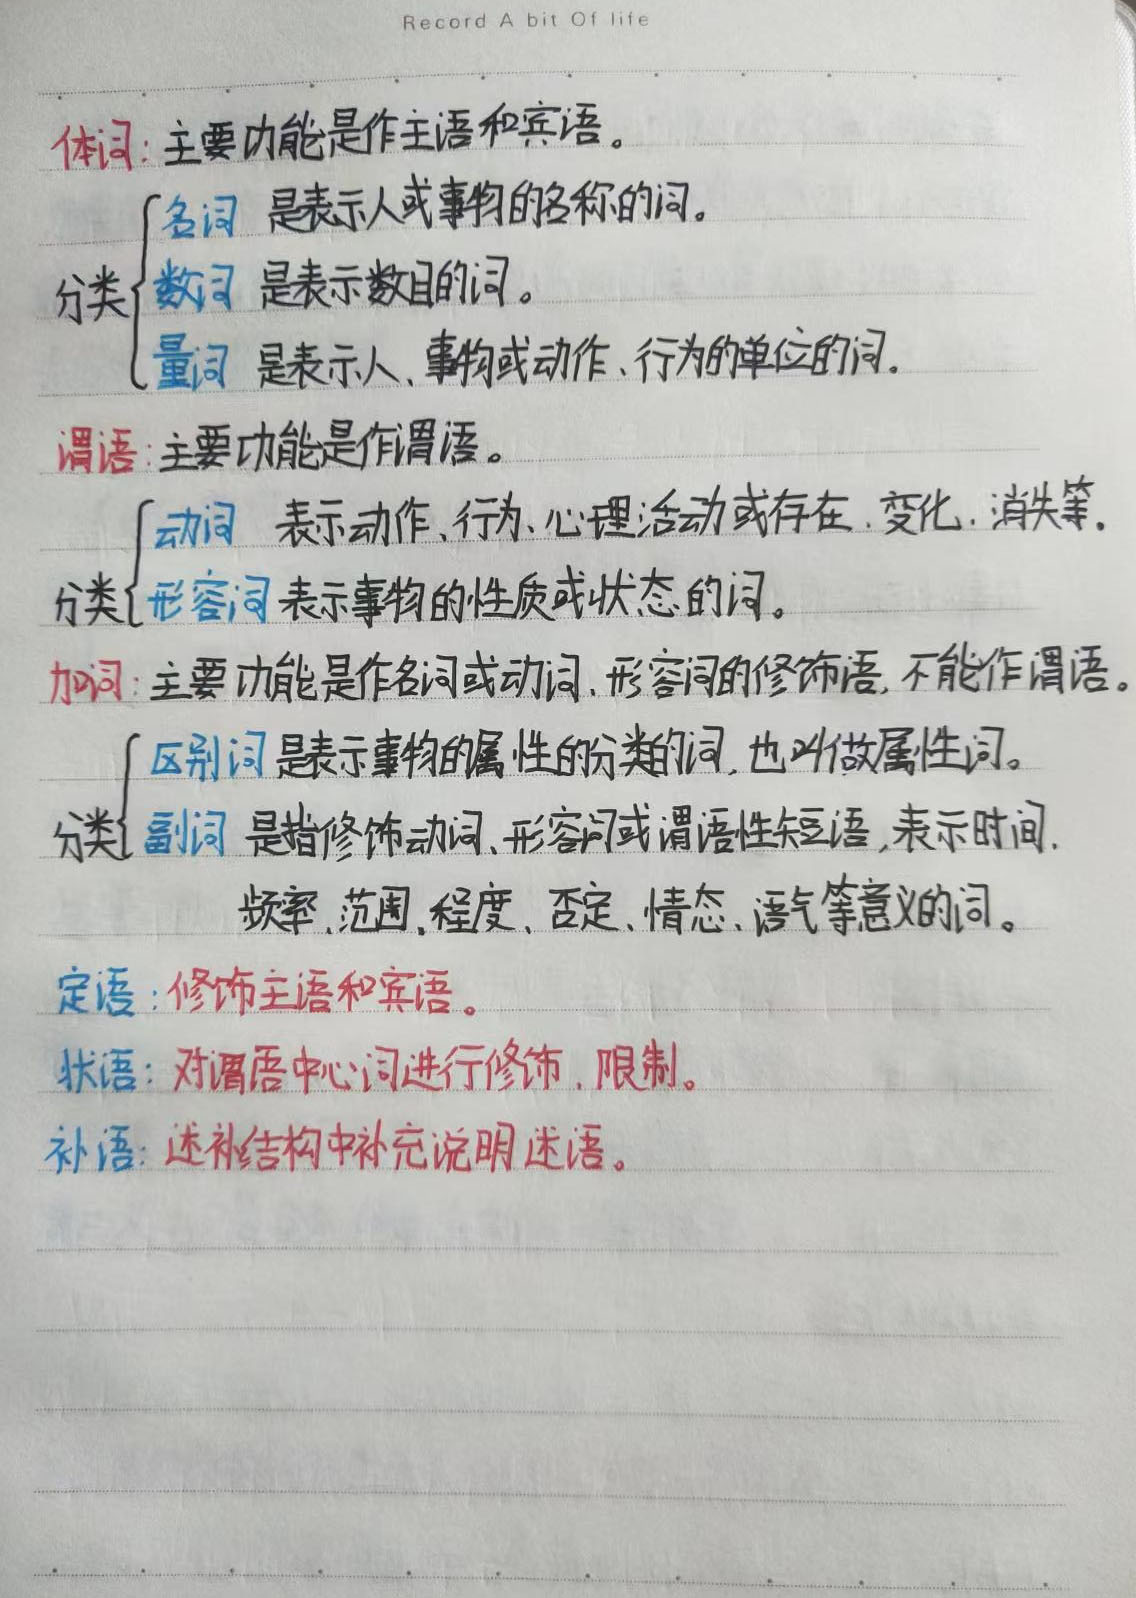 Record A bit Of life
体词：主要功能是作主语和宾语。
名词 是表示人或事物的名称的词。
分类 数词 是表示数目的词。
量词 是表示人、事物或动作、行为的单位的词。
谓语：主要功能是作谓语。
动词 表示动作、行为、心理活动或存在、变化、消失等。
分类 形容词 表示事物的性质或状态的词。
加词：主要功能是作名词或动词、形容词的修饰语，不能作谓语。
区别词 是表示事物的属性的分类的词，也叫做属性词。
分类 副词 是指修饰动词、形容词或谓语性短语，表示时间、
频率、范围、程度、否定、情态、语气等意义的词。
定语：修饰主语和宾语。
状语：对谓语中心词进行修饰、限制。
补语：述补结构中补充说明述语。